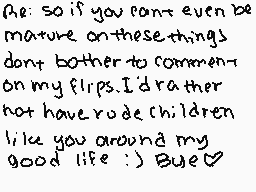 Re: so if you cant even be
mature on these things
dont bother to comment
on my flips. I'd rather
not have rude children
like you around my
good life :) Bye♡